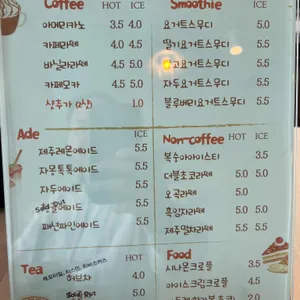 Coffee HOT ICE
아메리카노 3.5 4.0
카페라떼 4.0 4.5
바닐라라떼 4.5 5.0
카페모카 4.5 5.0
샷추가 1.0
Smoothie ICE
요거트스무디 5.0
딸기요거트스무디 5.5
망고요거트스무디 5.5
자두요거트스무디 5.5
블루베리요거트스무디 5.5
Ade ICE
제주레몬에이드 5.5
자몽톡톡에이드 5.5
자두에이드 5.5
에이드 5.5
패션파인에이드 5.5
Non-coffee HOT ICE
복숭아아이스티 3.5
더블초코라떼 5.0 5.0
오곡라떼 5.0
흑임자라떼 5.0 5.0
제주말차라떼 5.5
Tea HOT
허브차 4.0
5.0
Food
시나몬크로플 3.5
아이스크림크로플 4.5
5.0